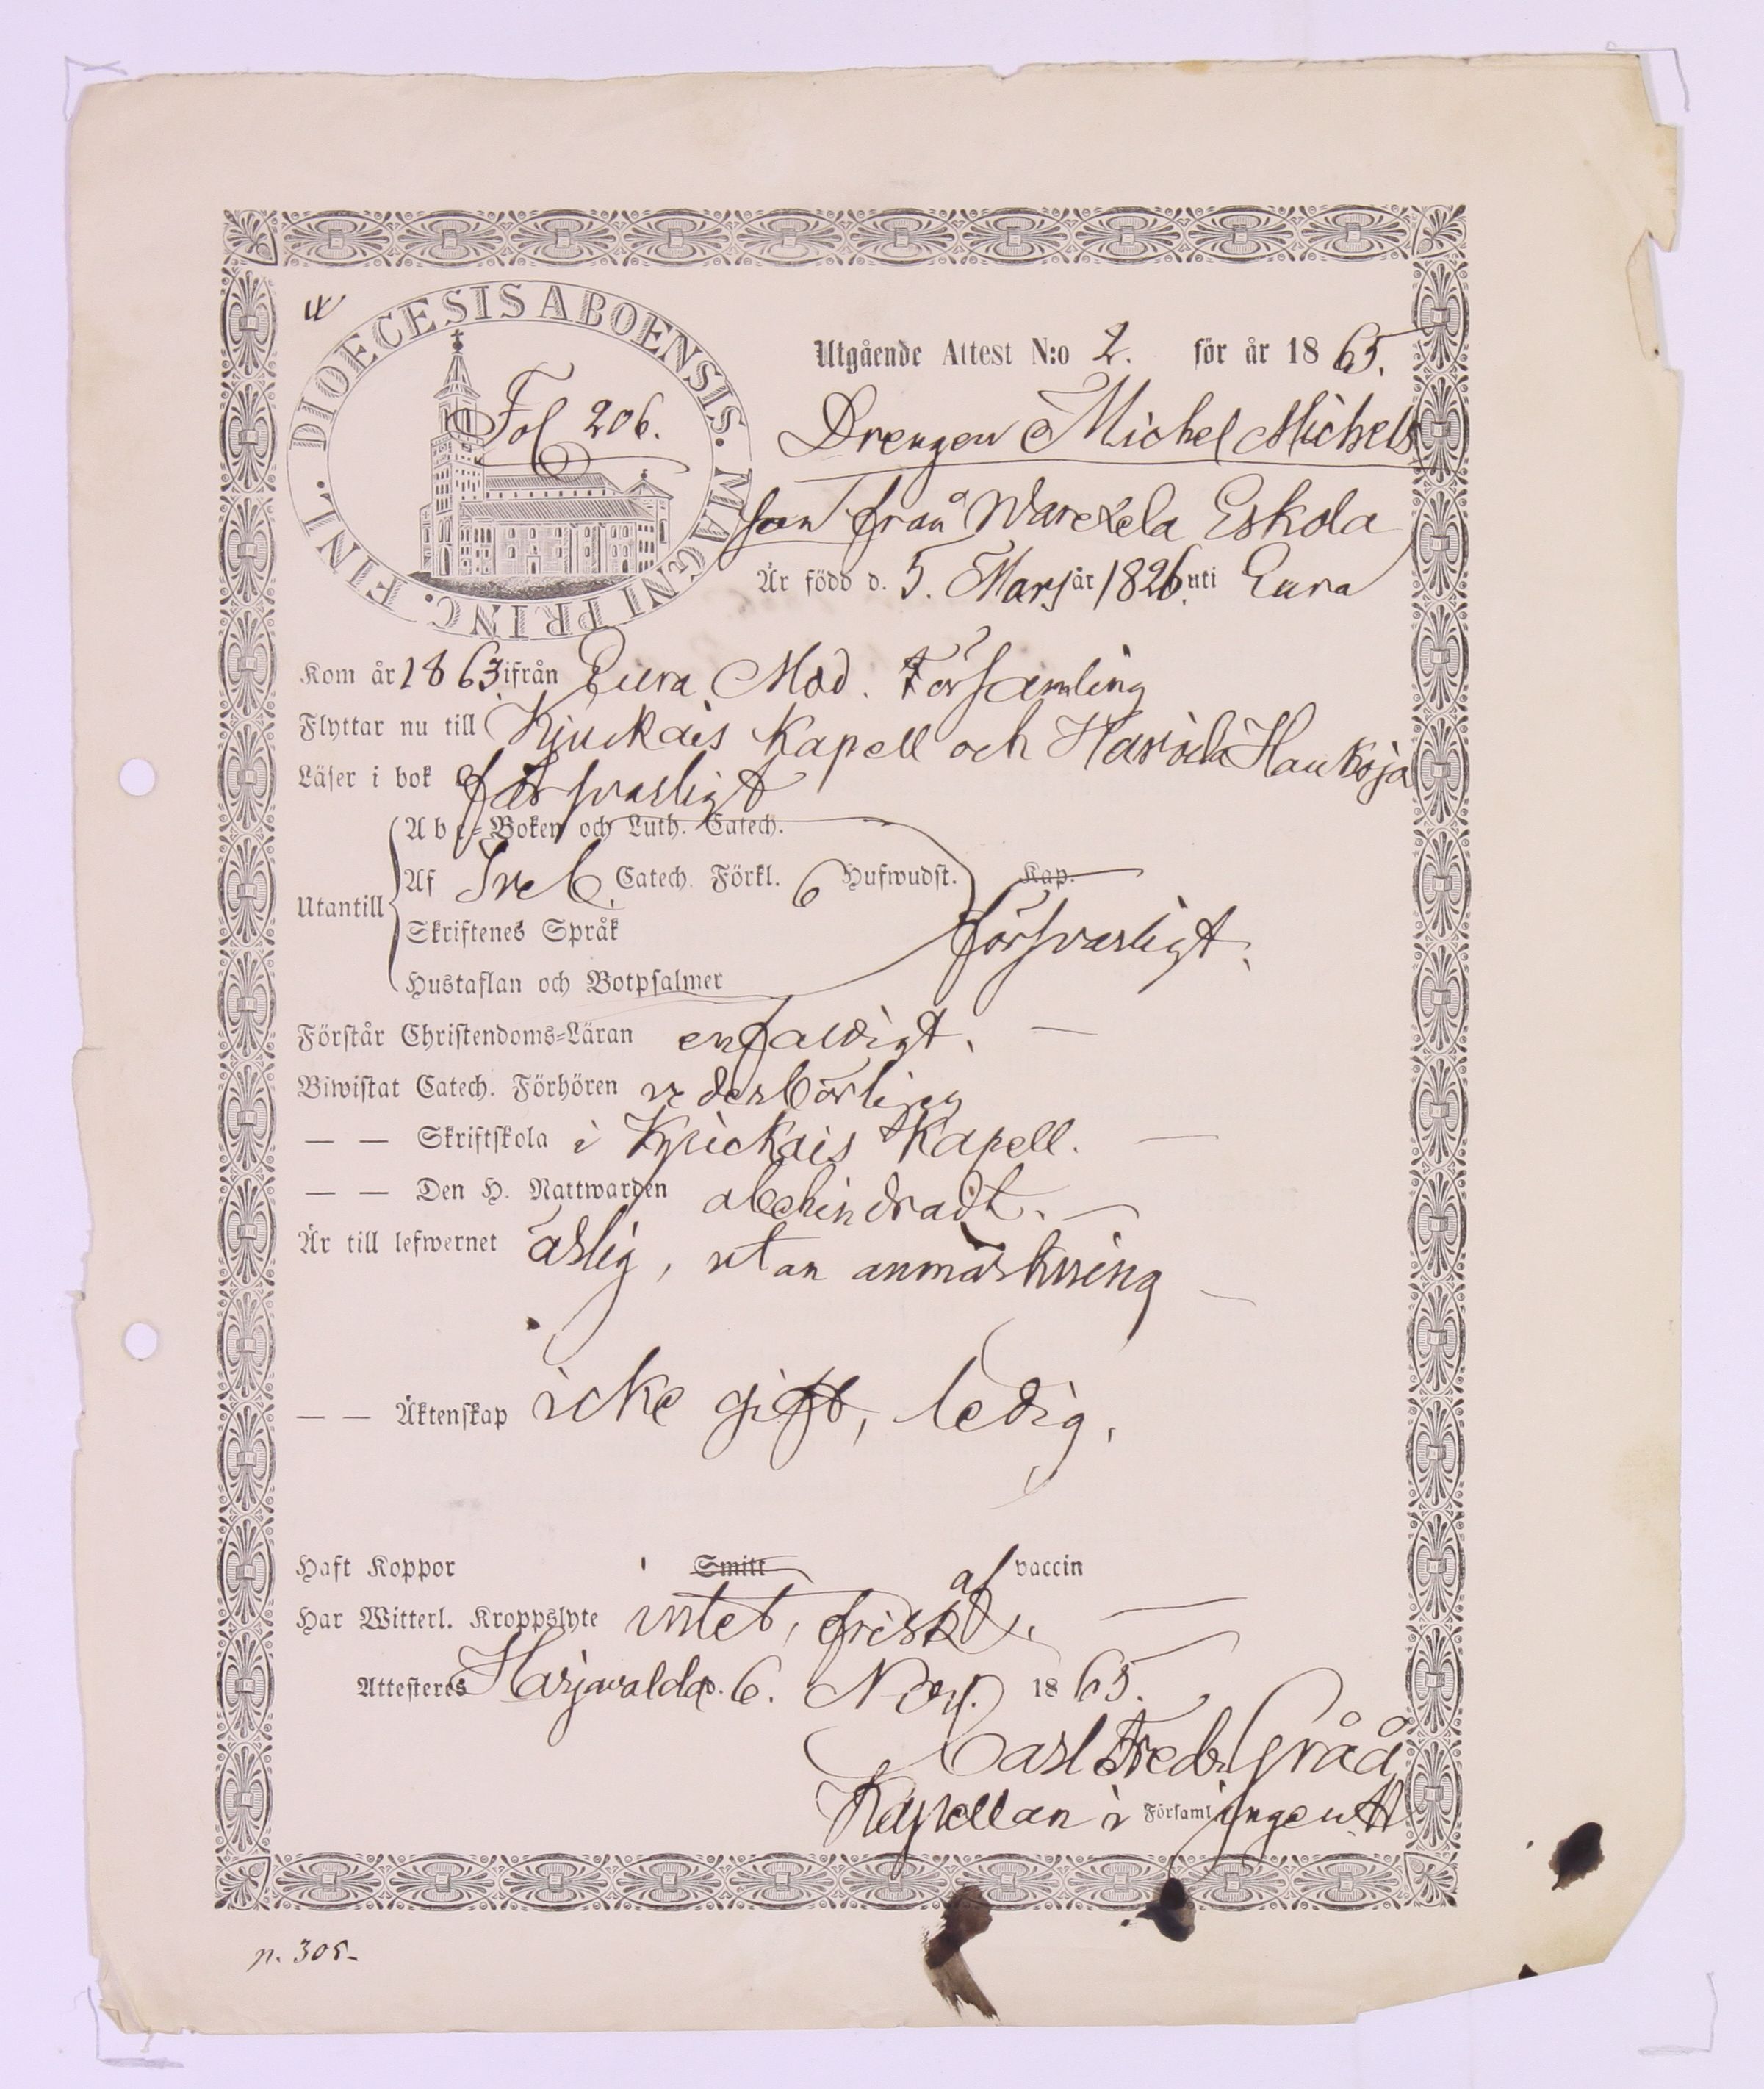 DIOECESIS ABOENSIS. MAGNI PRINC. FINL.
Fol 206.
Utgående Attest N:o 2. för år 1865.
Drengen Michel Michels
son från Warckela Eskola
Är född d. 5. Mars år 1826. uti Eura
Kom år 1863 ifrån Eura Mod. Församling
Flyttar nu till Kjuckais Kapell och Harola Haukoja
Läser i bok försvarligt
Abc-Boken och Luth. Catech.
Utantill Af Sveb. Catech. Förkl. 6 Hufwudst. Kap.
försvarligt.
Skriftenes Språk
Hustaflan och Botpsalmer
Förstår Christendoms-Läran enfaldigt. —
Biwistat Catech. Förhören vederbörligen
— — Skriftskola i Kjuckais Kapell. —
— — Den H. Nattwarden obehindradt. —
Är till lefwernet ärlig, utan anmärkning —
— — Äktenskap icke gift, ledig.
Haft Koppor Smitt af vaccin
Har Witterl. Kroppslyte intet, friskt. —
Attesteres Harjavalda d. 6. Nov. 1865.
Carl Fredr. Gråå
Kapellan i Församlingen H
p. 305-